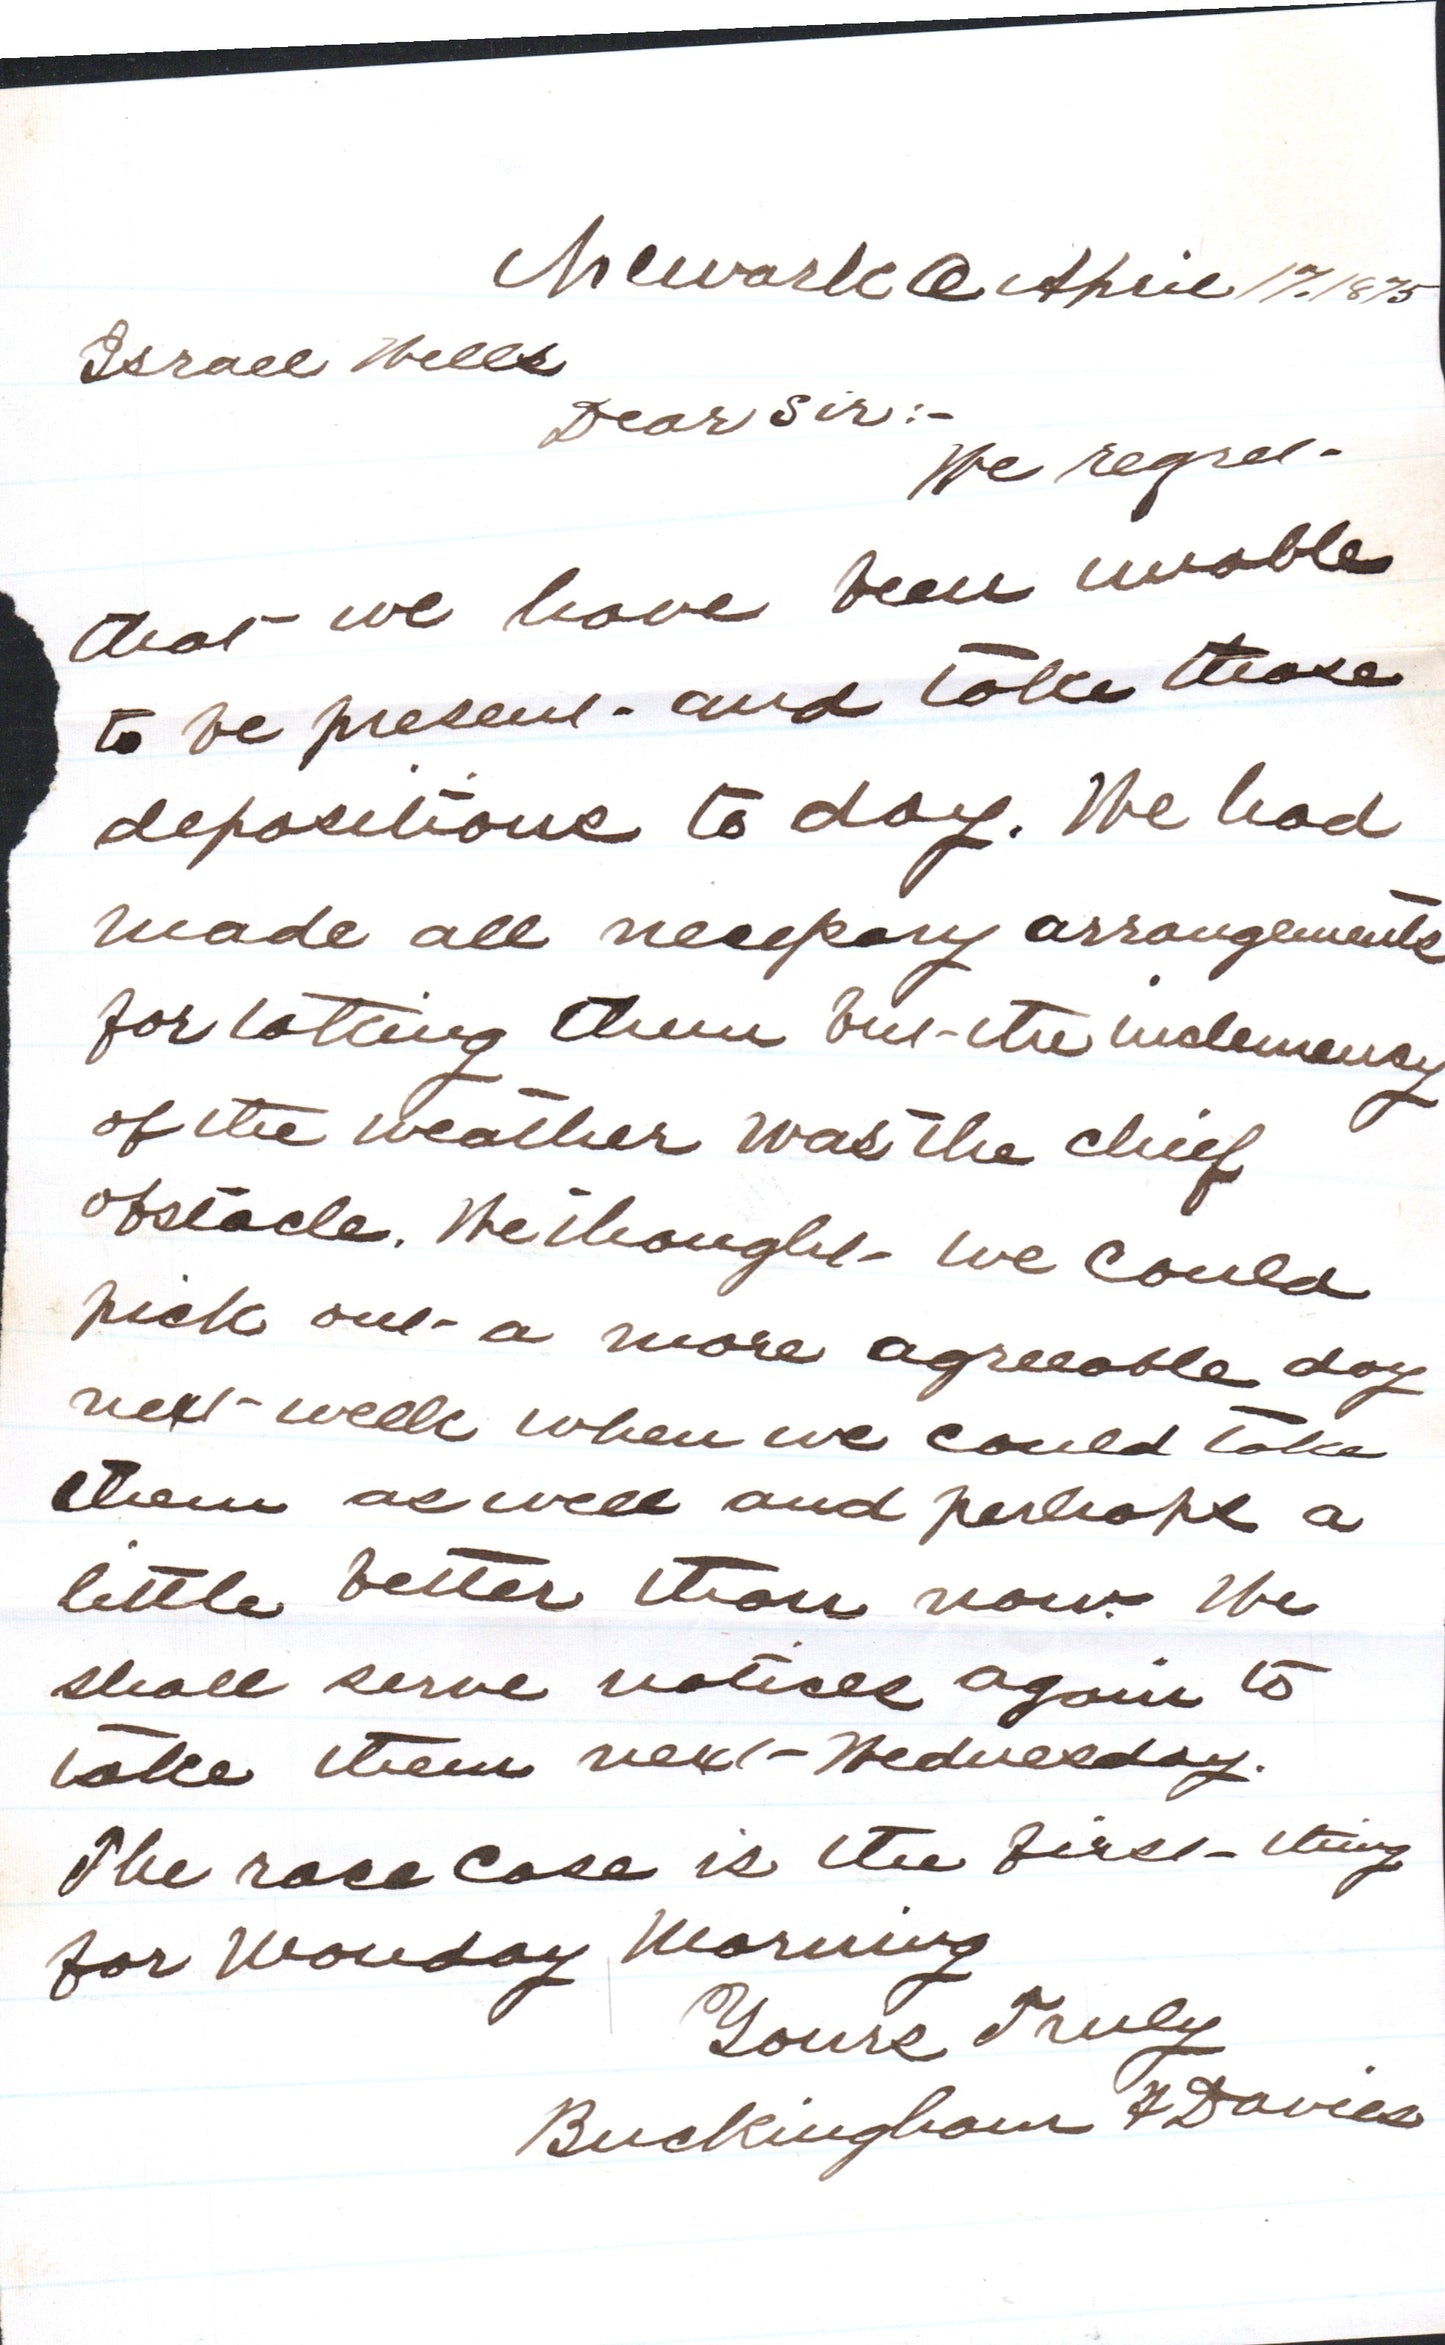 Newark O April 17, 1875
Israel Wells
Dear Sir:-
We regret
that we have been unable
to be present and take those
depositions to day. We had
made all necessary arrangements
for taking them but the inclemency
of the weather was the chief
obstacle. We thought we could
pick out a more agreeable day
next week when we could take
them as well and perhaps a
little better than now. We
shall serve notices again to
take them next Wednesday.
The case is the first thing
for Monday Morning
Yours Truly
Buckingham & Davies